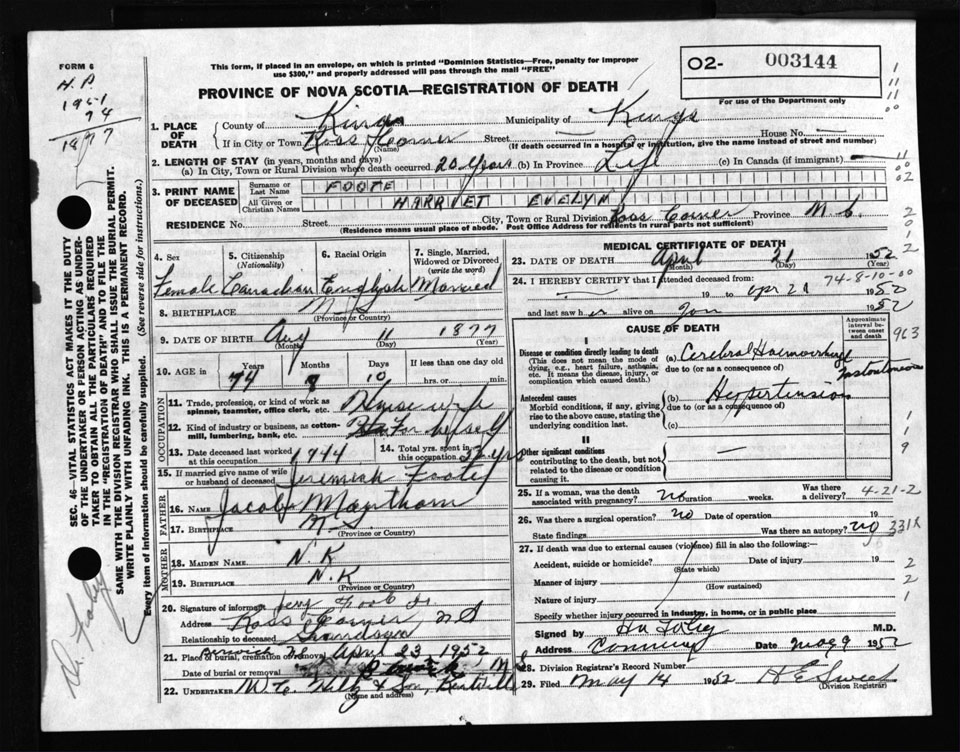 FORM 6
H. P.
1951
74
1877
This form, if placed in an envelope, on which is printed "Dominion Statistics—Free, penalty for improper
use $300," and properly addressed will pass through the mail "FREE"
02- 003144
For use of the Department only
PROVINCE OF NOVA SCOTIA—REGISTRATION OF DEATH
1. PLACE OF DEATH
County of Kings Municipality of Kings
If in City or Town Ross Corner Street — House No. —
(Name) (If death occurred in a hospital or institution, give the name instead of street and number)
2. LENGTH OF STAY (in years, months and days)
(a) In City, Town or Rural Division where death occurred 20 years (b) In Province Life (c) In Canada (if immigrant) —
3. PRINT NAME OF DECEASED
Surname or Last Name FOOTE
All Given or Christian Names HARRIET EVELYN
RESIDENCE No. Street City, Town or Rural Division Ross Corner Province N.S.
(Residence means usual place of abode. Post Office Address for residents in rural parts not sufficient)
4. Sex Female
5. Citizenship (Nationality) Canadian
6. Racial Origin English
7. Single, Married, Widowed or Divorced (write the word) Married
8. BIRTHPLACE N.S.
(Province or Country)
9. DATE OF BIRTH Aug 11 1877
(Month) (Day) (Year)
10. AGE in Years Months Days If less than one day old
74 8 10 hrs. or min.
OCCUPATION
11. Trade, profession, or kind of work as
spinner, teamster, office clerk, etc. Housewife
12. Kind of industry or business, as cotton-
mill, lumbering, bank, etc. For herself
13. Date deceased last worked
at this occupation 1944
14. Total yrs. spent in
this occupation yrs
15. If married give name of wife
or husband of deceased Jeremiah
FATHER
16. NAME Jacob
17. BIRTHPLACE N.S.
(Province or Country)
MOTHER
18. MAIDEN NAME N.K
19. BIRTHPLACE N.K
(Province or Country)
20. Signature of informant Jerry Foote Jr.
Address Ross Corner N S
Relationship to deceased Grandson
21. Place of burial, cremation or removal Berwick N.S. April 23, 1952
Date of burial or removal
22. UNDERTAKER & Son, Kentville
(Name and address)
MEDICAL CERTIFICATE OF DEATH
23. DATE OF DEATH April 21 1952
(Month) (Day) (Year)
74-8-10-00
24. I HEREBY CERTIFY that I attended deceased from:
19 to Apr 21 1952
and last saw her alive on Jan 1952
CAUSE OF DEATH
Approximate interval between onset and death
963
I
Disease or condition directly leading to death
(This does not mean the mode of
dying, e.g., heart failure, asthenia,
etc. It means the disease, injury, or
complication which caused death.)
(a) Cerebral Haemorrhage Instantaneous
due to (or as a consequence of)
Antecedent causes
Morbid conditions, if any, giving
rise to the above cause, stating the
underlying condition last.
(b) Hypertension
due to (or as a consequence of)
(c)
II
Other significant conditions
contributing to the death, but not
related to the disease or condition
causing it.
—
25. If a woman, was the death
associated with pregnancy? no Duration weeks. Was there a delivery?
4-21-2
26. Was there a surgical operation? no Date of operation 19
State findings Was there an autopsy? no
331X
27. If death was due to external causes (violence) fill in also the following:
Accident, suicide or homicide? Date of injury 19
(State which)
Manner of injury
(How sustained)
Nature of injury
Specify whether injury occurred in industry, in home, or in public place
Signed by M.D.
Address Canning Date May 9 1952
28. Division Registrar's Record Number
29. Filed May 14 1952 H E Sweet
(Division Registrar)
SEC. 46- VITAL STATISTICS ACT MAKES IT THE DUTY
OF THE UNDERTAKER OR PERSON ACTING AS UNDER-
TAKER TO OBTAIN ALL THE PARTICULARS REQUIRED
IN THE "REGISTRATION OF DEATH" AND TO FILE THE
SAME WITH THE DIVISION REGISTRAR WHO SHALL ISSUE THE BURIAL PERMIT.
WRITE PLAINLY WITH UNFADING INK. THIS IS A PERMANENT RECORD.
Every item of information should be carefully supplied. (See reverse side for instructions.)
Dr. Foley